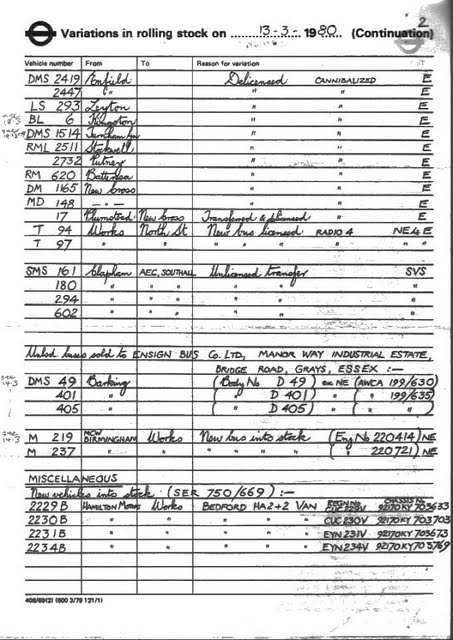 2
Variations in rolling stock on 13-3- 1980 (Continuation)
Vehicle number From To Reason for variation
DMS 2419 Enfield Delicensed CANNIBALIZED E
2447 " " " E
LS 293 Leyton " " E
BL 6 Kingston " " E
DMS 1514 Turnham Gn " " E
RML 2511 Stockwell " " E
2732 Putney " " E
RM 620 Battersea " " E
DM 1165 New Cross " " E
MD 148 — " — " " E
17 Plumstead New Cross Transferred & delicensed " E
T 94 Works North St New bus licensed RADIO 4 NE4E
T 97 " " " " " " " "
SMS 161 Clapham AEC, SOUTHALL Unlicensed transfer SVS
180 " " " " "
294 " " " " "
602 " " " " "
Unlsd buses sold to ENSIGN BUS Co. LTD, MANOR WAY INDUSTRIAL ESTATE,
BRIDGE ROAD, GRAYS, ESSEX :-
DMS 49 Barking (Body No D 49) ex NE (AWCA 199/630)
401 " ( " D 401) " ( " 199/635)
405 " ( " D 405) " ( " " )
M 219 MCW BIRMINGHAM Works New bus into stock (Eng No 220414) NE
M 237 " " " " " ( " 220721) NE
MISCELLANEOUS
New vehicles into stock (SER 750/669) :-
REGN NO CHASSIS No
2229B HAMILTON MOTORS Works BEDFORD HA2+2 VAN 92170KY 703633
2230B " " " " " CUC 230V 92170KY703703
2231B " " " " " EYN 231V 92170KY 703673
2234B " " " " " EYN 234V 92170KY 703769